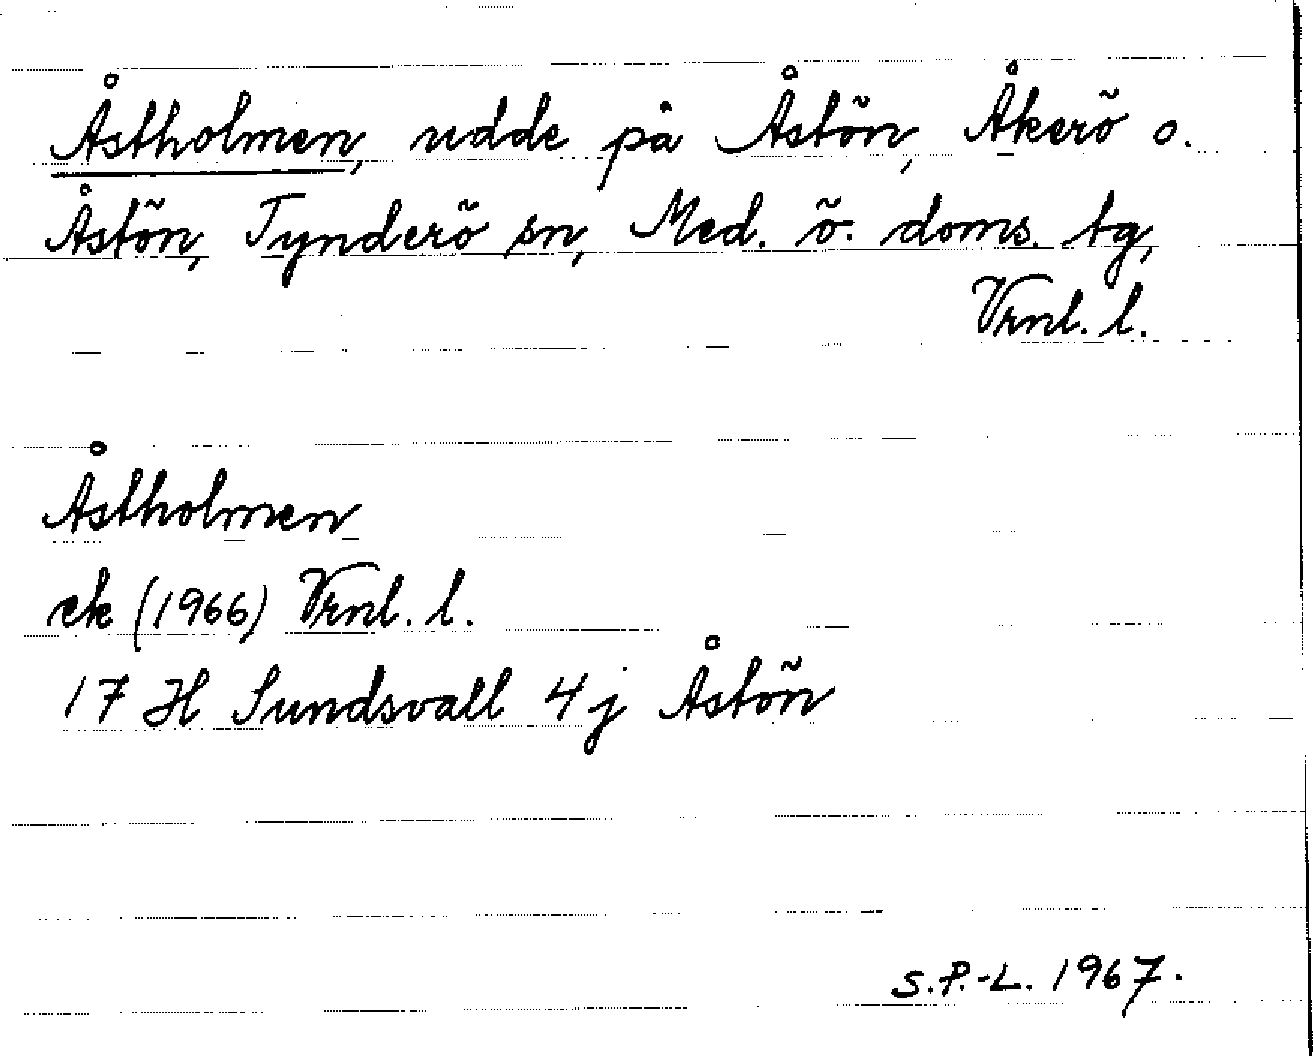 Åstholmen, udde på Åstön, Åkerö o.
Åstön, Tynderö sn, Med. ö. doms. tg,
Vrnl. l.
Åstholmen
ek (1966) Vrnl. l.
17 H Sundsvall 4 j Åstön
S.P.-L. 1967.